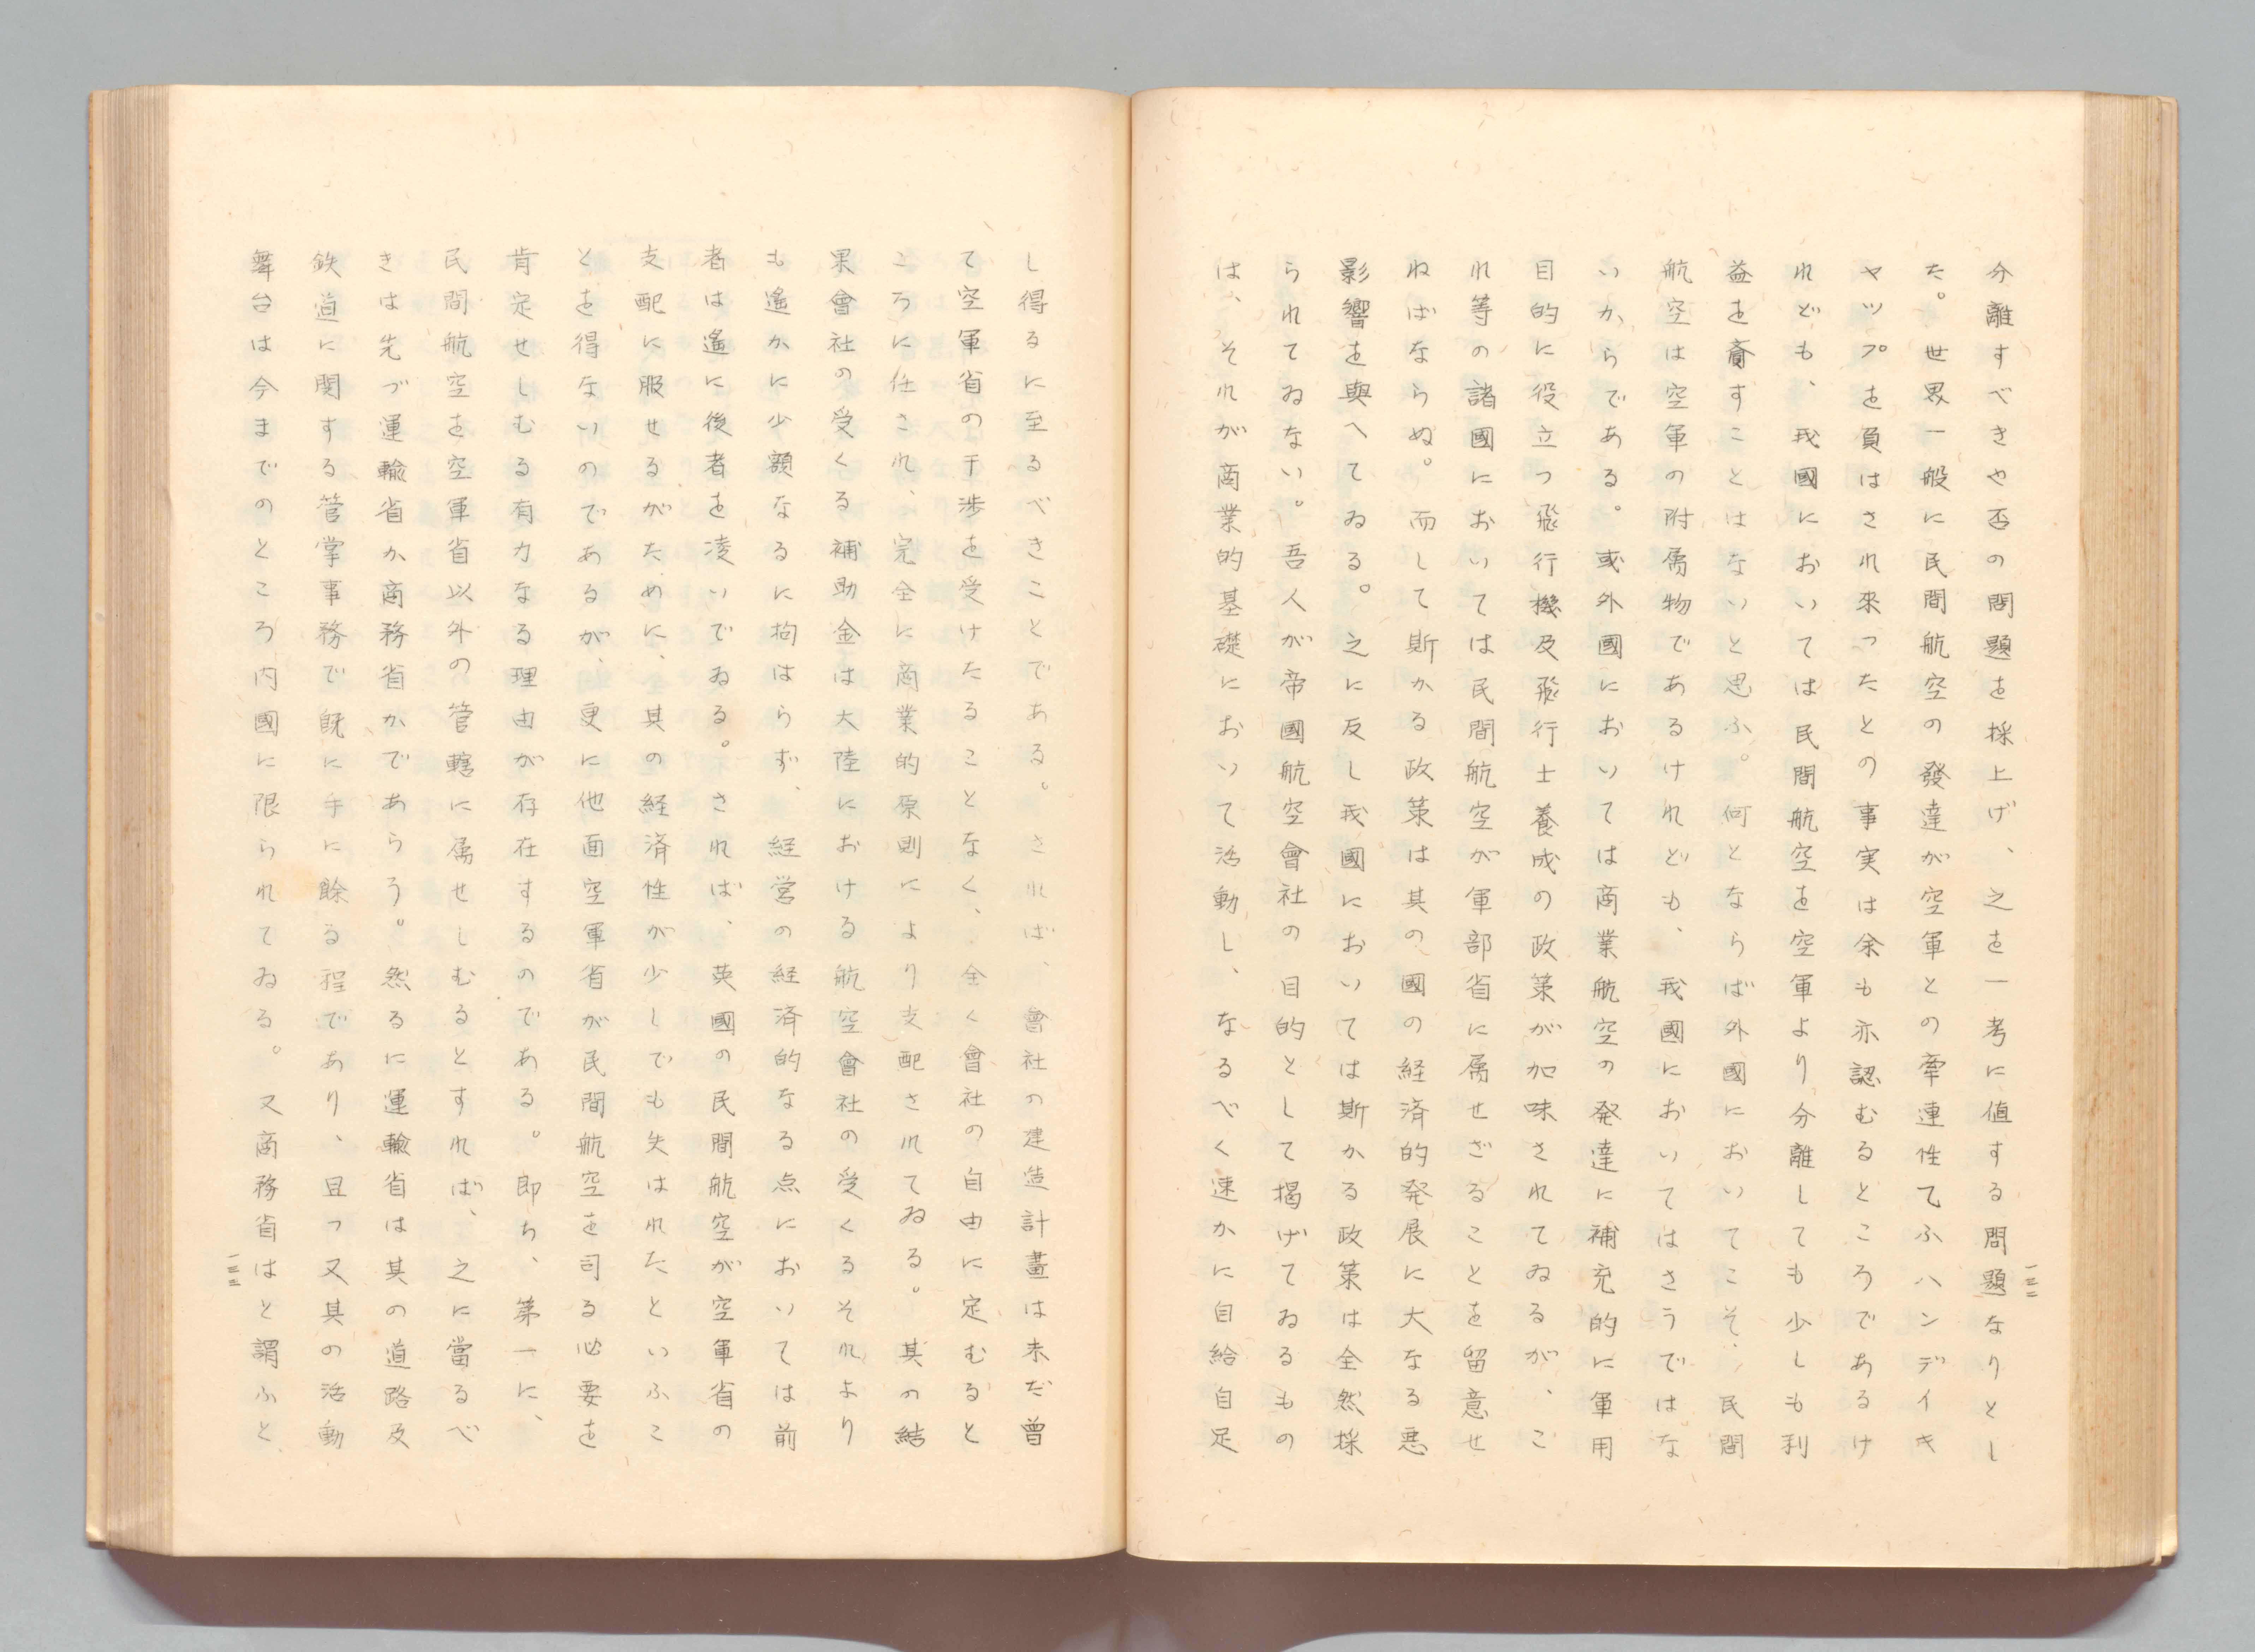 分離すべきや否の問題を採上げ、之を一考に値する問題なりとし
た。世界一般に民間航空の發達が空軍との牽連性てふハンデイキ
ヤツプを負はされ來つたとの事実は余も亦認むるところであるけ
れども、我國においては民間航空を空軍より分離しても少しも利
益を齎すことはないと思ふ。何とならば外國においてこそ、民間
航空は空軍の附属物であるけれども、我國においてはさうではな
いからである。或外國においては商業航空の発達に補充的に軍用
目的に役立つ飛行機及飛行士養成の政策が加味されてゐるが、こ
れ等の諸國においては民間航空が軍部省に属せざることを留意せ
ねばならぬ。而して斯かる政策は其の國の経済的発展に大なる悪
影響を與へてゐる。之に反し我國においては斯かる政策は全然採
られてゐない。吾人が帝國航空會社の目的として掲げてゐるもの
は、それが商業的基礎において活動し、なるべく速かに自給自足
一三二
し得るに至るべきことである。されば、會社の建造計畫は未だ曽
て空軍省の干渉を受けたることなく、全く會社の自由に定むると
ころに任され、完全に商業的原則により支配されてゐる。其の結
果會社の受くる補助金は大陸における航空會社の受くるそれより
も遙かに少額なるに拘はらず、経営の経済的なる点においては前
者は遙に後者を凌いでゐる。されば、英國の民間航空が空軍省の
支配に服せるがために、其の経済性が少しでも失はれたといふこ
とを得ないのであるが、更に他面空軍省が民間航空を司る必要を
肯定せしむる有力なる理由が存在するのである。即ち、第一に、
民間航空を空軍省以外の管轄に属せしむるとすれば、之に當るべ
きは先づ運輸省か商務省かであらう。然るに運輸省は其の道路及
鉄道に関する管掌事務で既に手に餘る程であり、且つ又其の活動
舞台は今までのところ内國に限られてゐる。又商務省はと謂ふと、
一三三